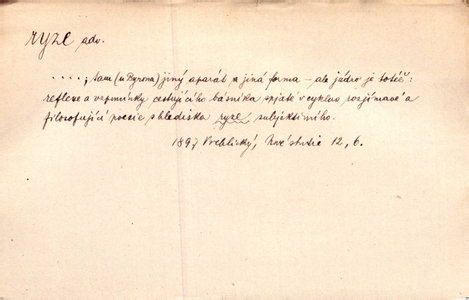 RYZE adv.
....; tam (u Byrona) jiný aparát a jiná forma – ale jádro je totéž:
reflexe a vzpomínky cestujícího básníka spjaté v cyklus rozjímavé a
filosofující poesie s hlediska ryze subjektivního.
1897 Vrchlický, Nové studie 12, 6.